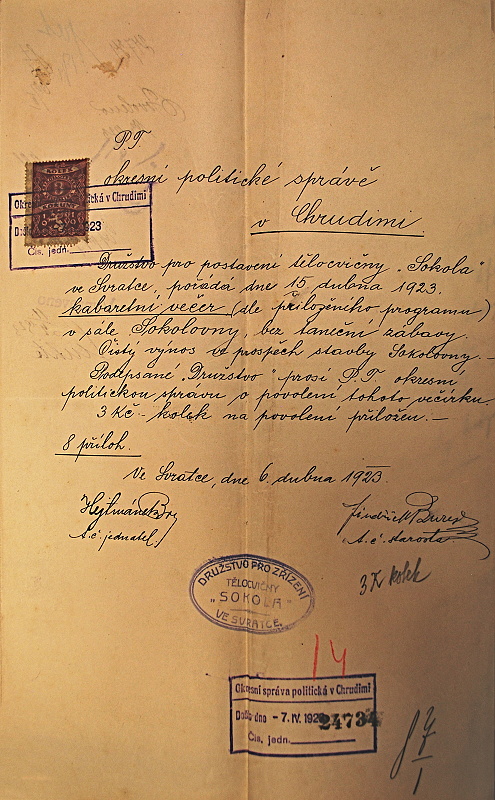 P.T.
okresní politické správě
v Chrudimi.
KOLEK
8
Okre
tická v Chrudimi
Došlo
1923
Čís. jedn.
Družstvo pro postavení tělocvičny „Sokola"
ve Svratce, pořádá dne 15. dubna 1923.
kabaretní večer (dle přiloženého programu)
v sále Sokolovny, bez taneční zábavy.
Čistý výnos ve prospěch stavby Sokolovny.—
Podepsané „Družstvo" prosí P.T. okresní
politickou správu o povolení tohoto večírku.
3 Kč - kolek na povolení přiložen.—
8 příloh.
Ve Svratce, dne 6. dubna 1923.
t.č. jednatel
Jindřich
t.č. starosta
3 Kč kolek
DRUŽSTVO PRO ZŘÍZENÍ
TĚLOCVIČNY
„SOKOLA"
VE SVRATCE.
14
Okresní správa politická v Chrudimi
Došlo dne - 7. IV. 1923 24734
Čís. jedn.